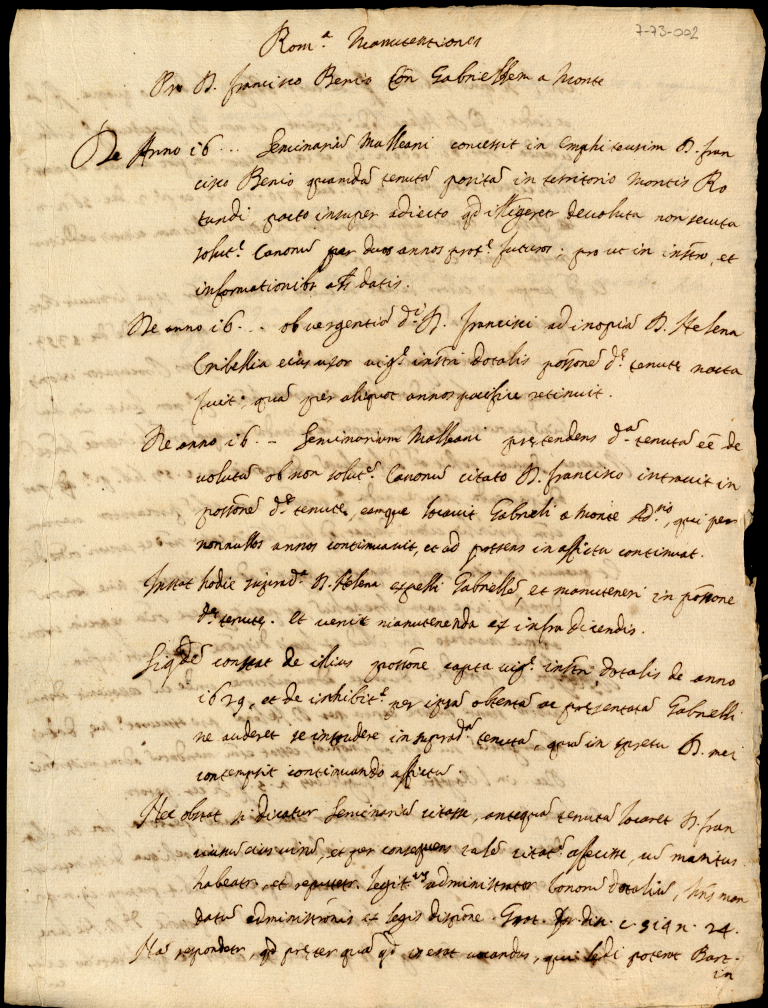 7-73-002
Rom.ª Manutentionis
Pro D. Francisco Benio Con Gabriellem a Monte
De Anno 16... Seminariũ Malleani concessit in Emphiteusim D. Fran
cisco Benio quamdã tenutã positã in territorio Montis Ro
tundi, pacto insuper adiecto qd illigeretr devoluta non secuta
solut.e Canonũ per duos annos prox.e futuros; pro ut in instro, et
informationibs als datis.
De anno 16... ob vergentiã d.i D. Francisci ad inopiã D. Helena
Cribellia eius uxor vig.e instri dotalis possonẽ d.e tenute nacta
fuit, quã per aliquot annos pacifice retinuit.
De anno 16.. Seminarium Malleani pretendens d.ã tenutã eẽ de
volutã ob non solut.e Canonũ citato D. Francisco intravit in
possonẽ d.e tenute, eamque locavit Gabrieli a Monte, qui per
nonnullos annos continuavit, et ad presens in affictu continuat.
Instat hodie suprad.a D. Helena expelli Gabriellẽ, et manuteneri in possone
d.e tenute. Et venit manutenenda ex infra dicendis.
Siqdẽ constat de illius possone capta vig.e instri dotalis de anno
1629, et de inhibit.e per ipsã obtenta ac presentata Gabrielli
ne auderet se intrudere in suprad.ã tenutã, quã in spretu D. mei
contempsit continuando affictũ.
Nec obstat si dicatur Seminariũ citasse, antequã tenutã locaret D. Fran
ciscũ eius virũ, et per consequens valẽ citat.e affecisse, cũ maritus
habeatr, et reputetr legit.us administrator bonorũ dotaliũ, hñs man
datũ administrõnis ex legis dispõne. Grat. for. disc. c. 514 n. 24.
Nã respondetr, qd preter quã qd is erat vocandus, qui ledi poterat Bart.
in